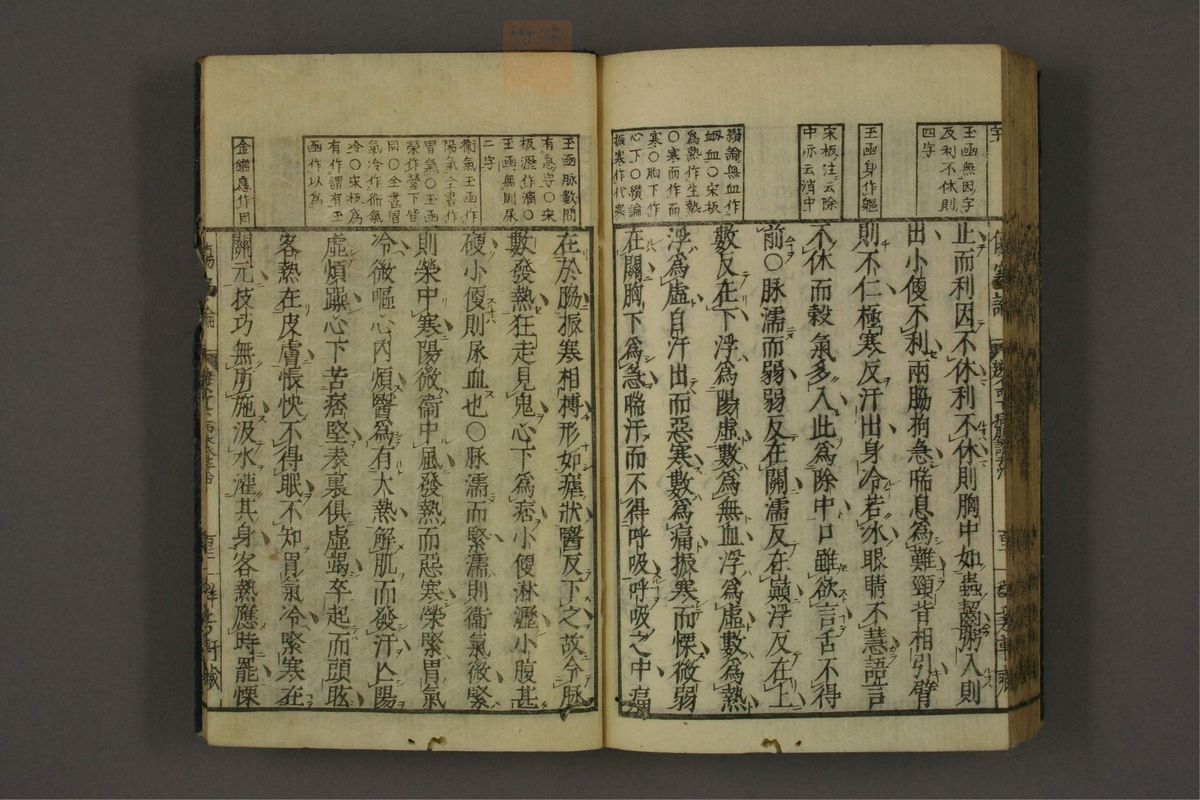 字
玉函無因字
及利不休則
四字
玉函身作軀
宋板注云除
中亦云消中
讚論無血作
䘐血○宋板
為熱作生熱
○寒而作而
寒○胸下作
心下○讚論
振寒作代寒
止而利因不休利不休則胸中如蟲齧粥入則
出小便不利兩脇拘急喘息為難頸背相引臂
則不仁極寒反汗出身冷若冰眼睛不慧語言
不休而穀氣多入此為除中口雖欲言舌不得
前○脉濡而弱弱反在關濡反在巔浮反在上
數反在下浮為陽虛數為無血浮為虛數為熱
浮為虛自汗出而惡寒數為痛振寒而慄微弱
在關胸下為急喘汗而不得呼吸呼吸之中痛
玉函脉數間
有急字○宋
板瀝作滴○
玉函無則尿
二字
衞氣玉函作
陽氣全書作
胃氣○玉函
榮作營下皆
同○全書胃
氣冷作衞氣
冷○宋板為
有作謂有玉
函作以為
金鑑應作因
在於脇振寒相搏形如瘧狀醫反下之故令脉
數發熱狂走見鬼心下為痞小便淋瀝小腹甚
硬小便則尿血也○脉濡而緊濡則衞氣微緊
則榮中寒陽微衞中風發熱而惡寒榮緊胃氣
冷微嘔心內煩醫為有大熱解肌而發汗亡陽
虛煩躁心下苦痞堅表裏俱虛竭卒起而頭眩
客熱在皮膚悵怏不得眠不知胃氣冷緊寒在
關元技巧無所施汲水灌其身客熱應時罷慄